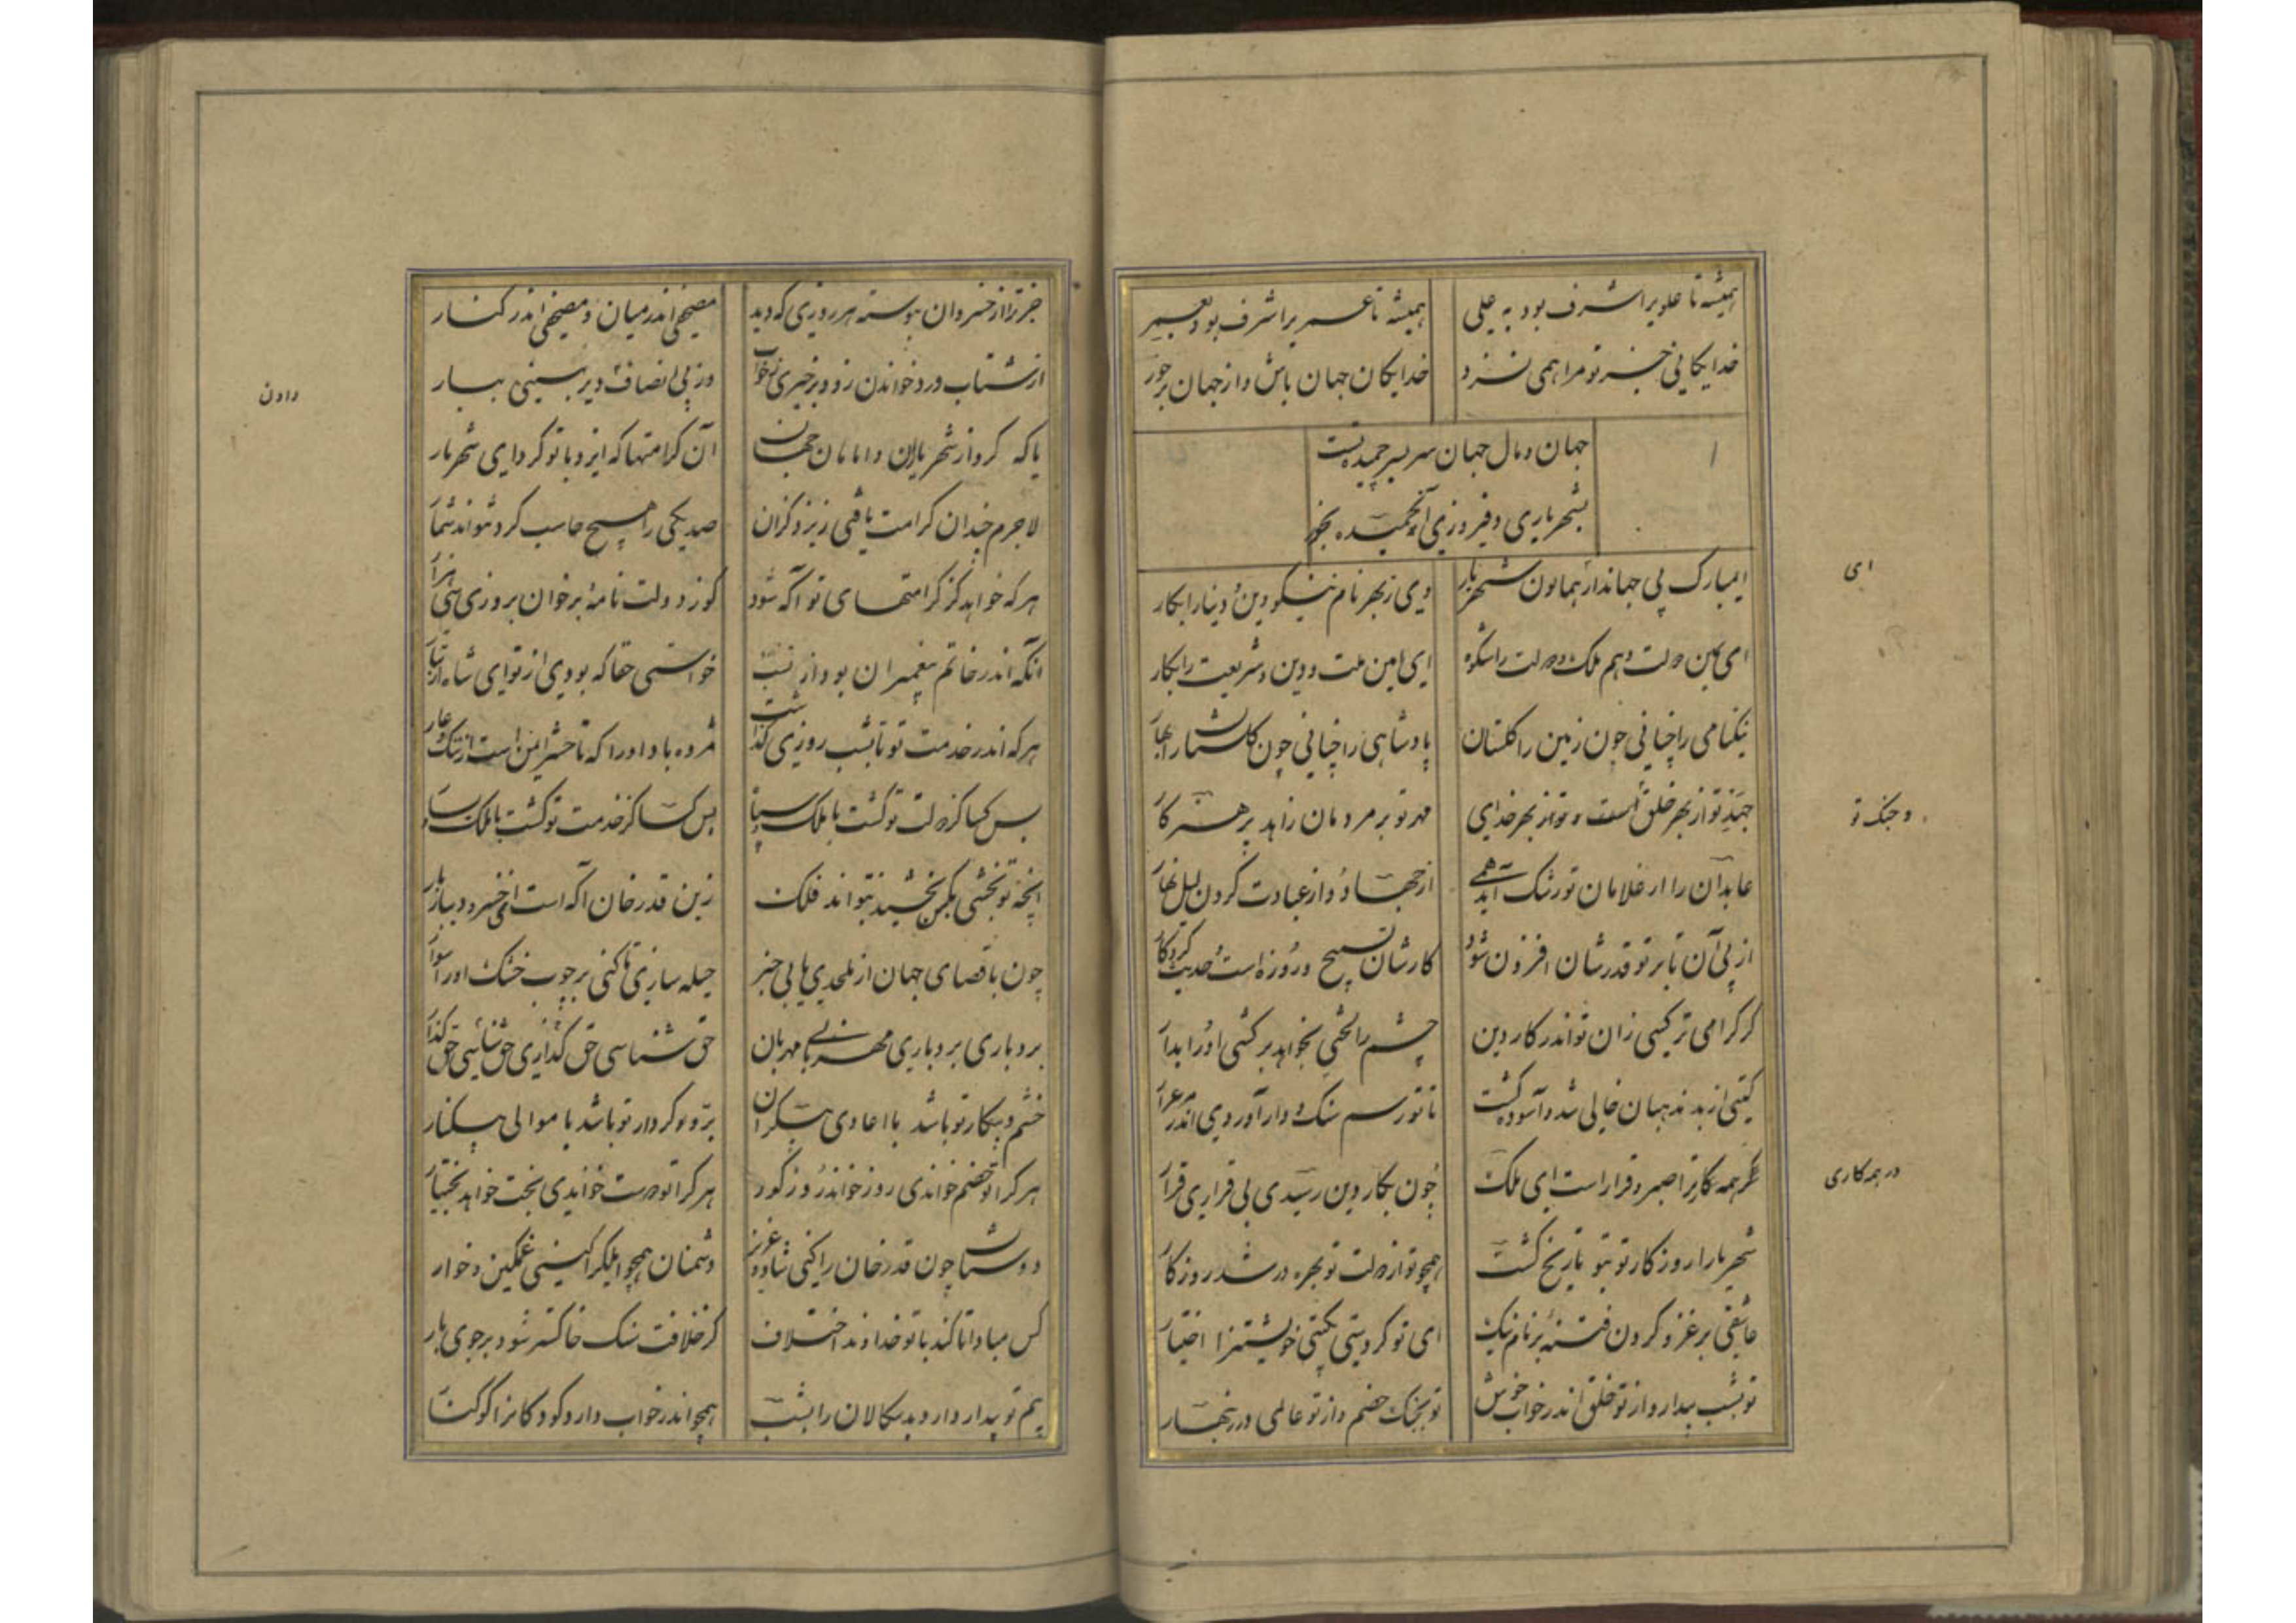 همیشه تا علوی را شرف بود به علی همیشه تا عمری را شرف بود بعمر
خدایکانی جز تو مرا همی نسزد خدایکان جهان باش واز جهان برخور
جهان ومال جهان سربسر خمیده تست
بشهریاری وفیروزی از خمیده بخور
ایمبارک پی جهاندار همایون شهریار وی ز بهر نام نیکو دین و دنیا را بکار
ای یمین دولت وهم ملک ودولت را شکوه ای امین ملت ودین وشریعت را بکار
ای
نیکنامی را چنانی چون زمین را کلستان پادشاهی را چنانی چون کلستان را بهار
جهد تو از بهر خلق است وتو از بهر خدای مهر تو بر مردمان زاهد پرهیزکار
وجنک تو
عابدان را از غلامان تو رشک آید همی از جهاد واز عبادت کردن لیل نهار
از پی آن تا بر تو قدرشان افزون شود کارشان تسبیح وروزه است وحدیث کردکار
کر کرامی تر کسی زان تو اندر کار دین چشم را لختی بخواهد برکشی او را بدار
کیتی از بد مذهبان خالی شد وآسوده کشت تا تو رسم سنک ودار آوردی اندر مرغزار
کر همه کار ترا صبر وقرار است ای ملک چون بکار دین رسیدی بی قراری بی قرار
در همه کاری
شهریارا روزکار تو بتو تاریخ کشت همچو تو از دولت تو بهره ور شد روزکار
عاشقی بر غزو کردن فتنهٔ بر نام نیک ای تو کردستی بکیتی خویشتن را اختیار
تو بشب بیدار واز تو خلق اندر خواب خوش تو بجنک خصم واز تو عالمی در زینهار
جز ترا از خسروان پیوسته هر روزی که دید مصحفی اندر میان ومصحفی اندر کنار
از شتاب ورد خواندن زود برخیزی ز خواب وز پی انصاف دیر بنشینی ببار
دادن
یا که کرد از شهریاران وامامان جهان آن کرامتها که ایزد با تو کرد ای شهریار
لاجرم چندان کرامت یافتی زیزد کزان صد یکی را هیچ حاسب کرد نتواند شمار
هر که خواهد کز کرامتهای تو آکه شود کو ز دولت نامهٔ برخوان بروزی بیتی هزار
آنکه اندر خاتم پیغمبران بود از نسب خواستی حقا که بودی از تو ای شاه از تبار
هر که اندر خدمت تو تا بشب روزی کذاشت مژده باد او را که تا حشر ایمن است از ننک وعار
بس کسا کز دولت تو کشت با ملک وسپاه بس کسا کز خدمت تو کشت با ملک ویسار
آنچه تو بخشی بکس بخشید نتواند فلک زین قدرخان آکه است ای خسرو دینار بار
چون باقصای جهان از ملحدی یابی خبر حیله سازی تا کنی بر چوب خشک او را سوار
بردباری بردباری مهربانی مهربان حق شناسی حق کذاری حق شناسی حق کذار
خشم وپیکار تو باشد با اعادی بیکران بر وکردار تو باشد با موالی بیکنار
هر کرا تو خصم خواندی روز خواند روز کور هر کرا تو دوست خواندی بخت خواند بختیار
دوستان چون قدرخان را کنی شاد وعزیز دشمنان همچو ایلک را کنی غمکین وخوار
کس مبادا تا کند با تو خداوند اختلاف کز خلافت سنک خاکستر شود بر جویبار
بیم تو بیدار دارد بدسکالان را بشب همچو اندر خواب دارد کودکان را کوکنار